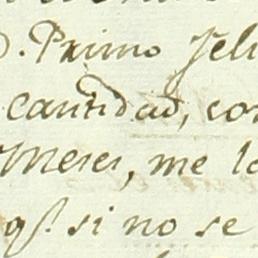 D. Primo Feli
cantidad, con
Meses, me la
qs. si no se